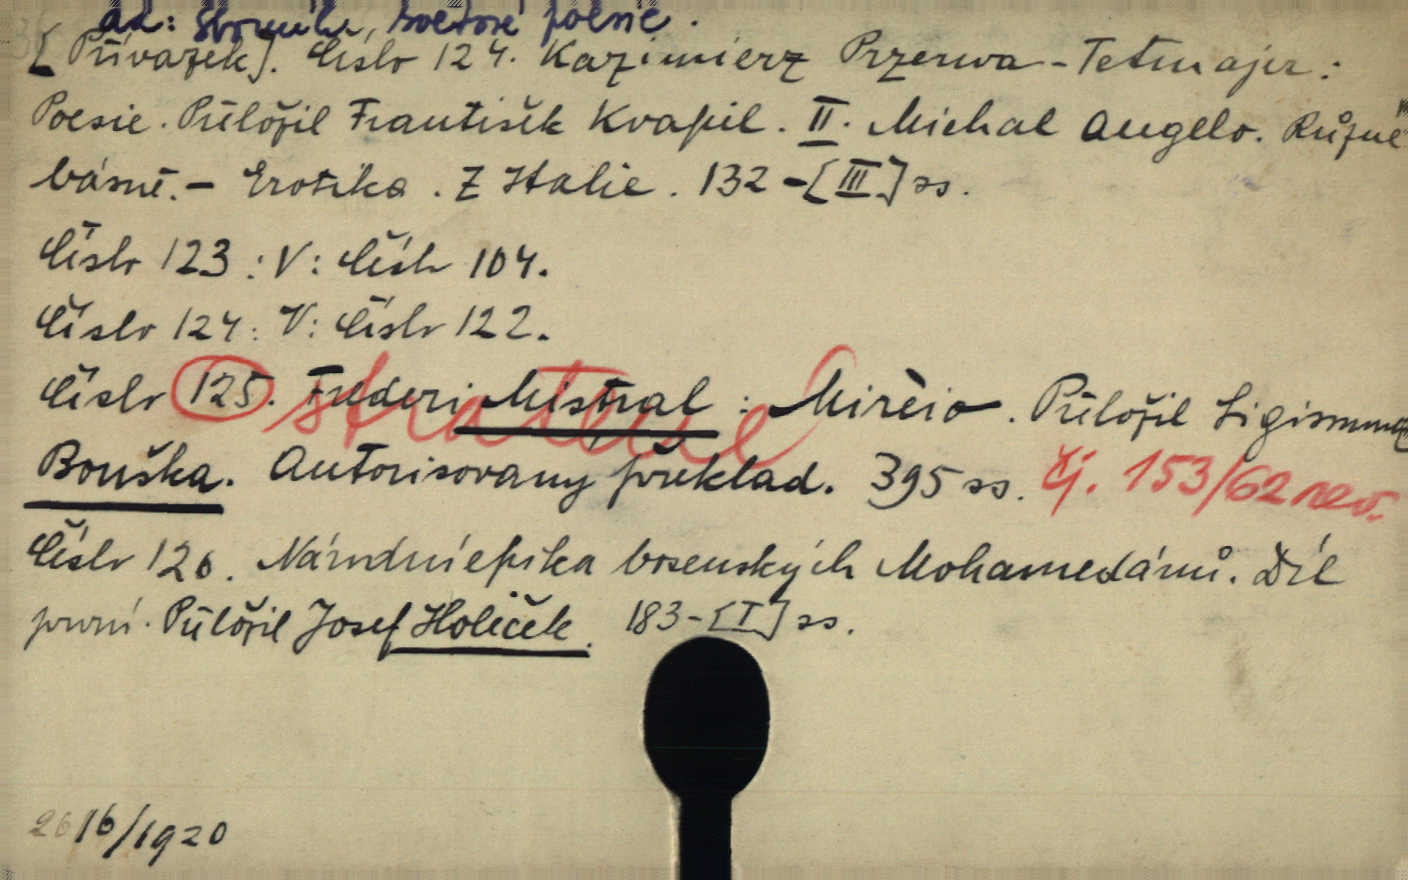 ad: Sborník, světové poesie.
[Přívazek]. Číslo 124. Kazimierz Przerwa-Tetmajer:
Poesie. Přeložil František Kvapil. II. Michal Angelo. Různé
básně. – Erotika. Z Italie. 132-[III] ss.
Číslo 123: V: Číslo 104.
Číslo 124: V: Číslo 122.
Číslo 125. Frederi Mistral: Mirèio. Přeložil Sigismund
Bouška. Autorisovaný překlad. 395 ss. čj. 153/62 rev.
Číslo 126. Národní epika bosenských Mohamedánů. Díl
první. Přeložil Josef Holeček. 183-[I] ss.
26 16/1920